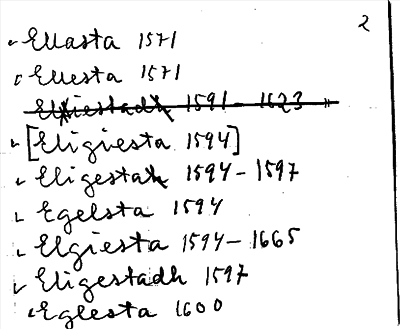 2
Ellasta 1571
Ellesta 1571
1591 - 1623 "
[Eligiesta 1594]
Eligestath 1594 - 1597
Egelsta 1594
Elgiesta 1594 - 1665
Eligestadh 1597
Eglesta 1600